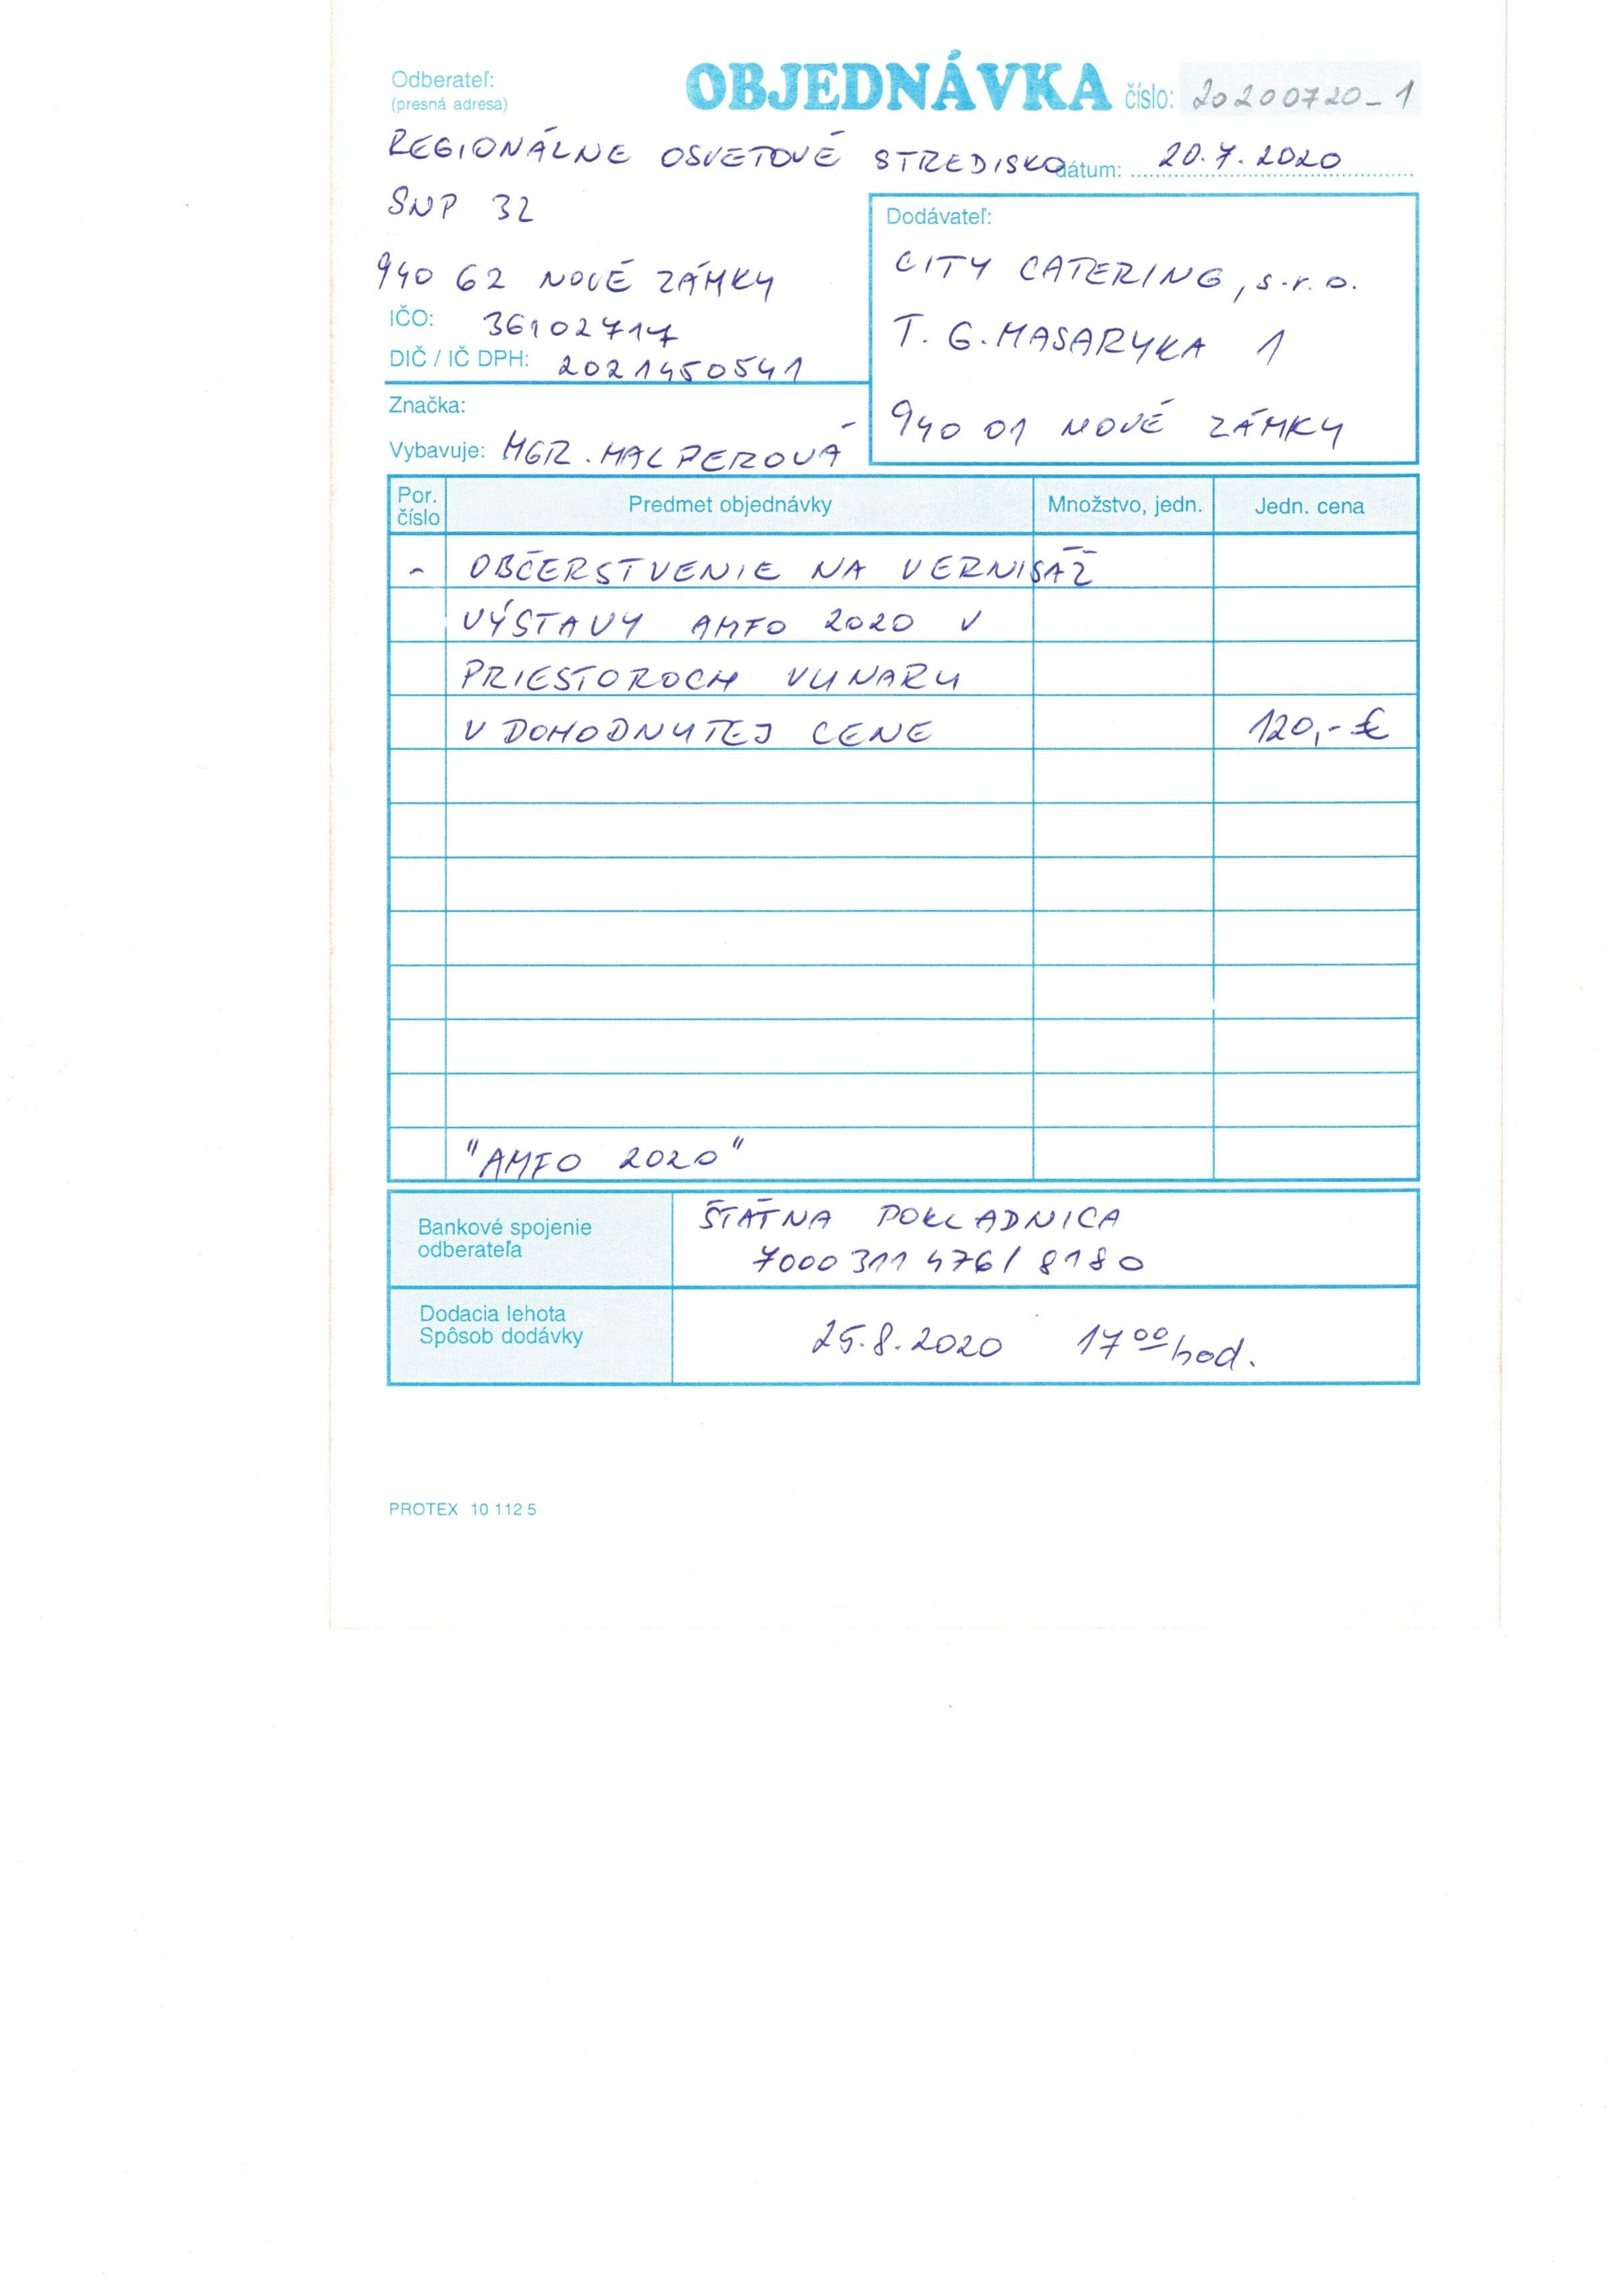 Odberateľ:
(presná adresa)
OBJEDNÁVKA číslo: 20200720_1
REGIONÁLNE OSVETOVÉ STREDISKO
dátum: 20.7.2020
SNP 32
940 62 NOVÉ ZÁMKY
IČO: 36102717
DIČ / IČ DPH: 2021450541
Značka:
Vybavuje: MGR. HALPEROVÁ
Dodávateľ:
CITY CATERING, s.r.o.
T. G. MASARYKA 1
940 01 NOVÉ ZÁMKY
Por. číslo Predmet objednávky Množstvo, jedn. Jedn. cena
- OBČERSTVENIE NA VERNISÁŽ
VÝSTAVY AMFO 2020 V
PRIESTOROCH VUNARU
V DOHODNUTEJ CENE 120,- €
"AMFO 2020"
Bankové spojenie
odberateľa
ŠTÁTNA POKLADNICA
7000 311 476 / 8180
Dodacia lehota
Spôsob dodávky
25.8.2020 17 00 hod.
PROTEX 10 112 5